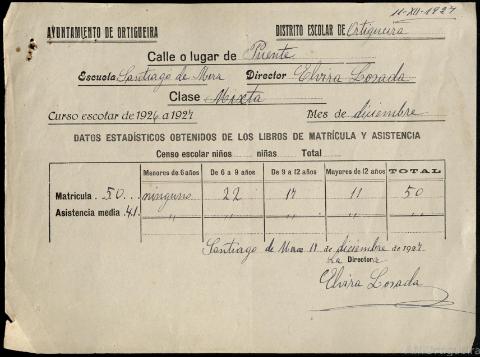 11-XII-1927
AYUNTAMIENTO DE ORTIGUEIRA
DISTRITO ESCOLAR DE Ortigueira
Calle o lugar de Puente
Escuela Santiago de Mera Director Elvira Losada
Clase Mixta
Curso escolar de 1926 a 1927 Mes de diciembre
DATOS ESTADÍSTICOS OBTENIDOS DE LOS LIBROS DE MATRÍCULA Y ASISTENCIA
Censo escolar niños niñas Total
Menores de 6 años De 6 a 9 años De 9 a 12 años Mayores de 12 años TOTAL
Matrícula 50 ninguno 22 17 11 50
Asistencia media 41 " " " " "
Santiago de Mera 11 de diciembre de 1927
La Directora
Elvira Losada